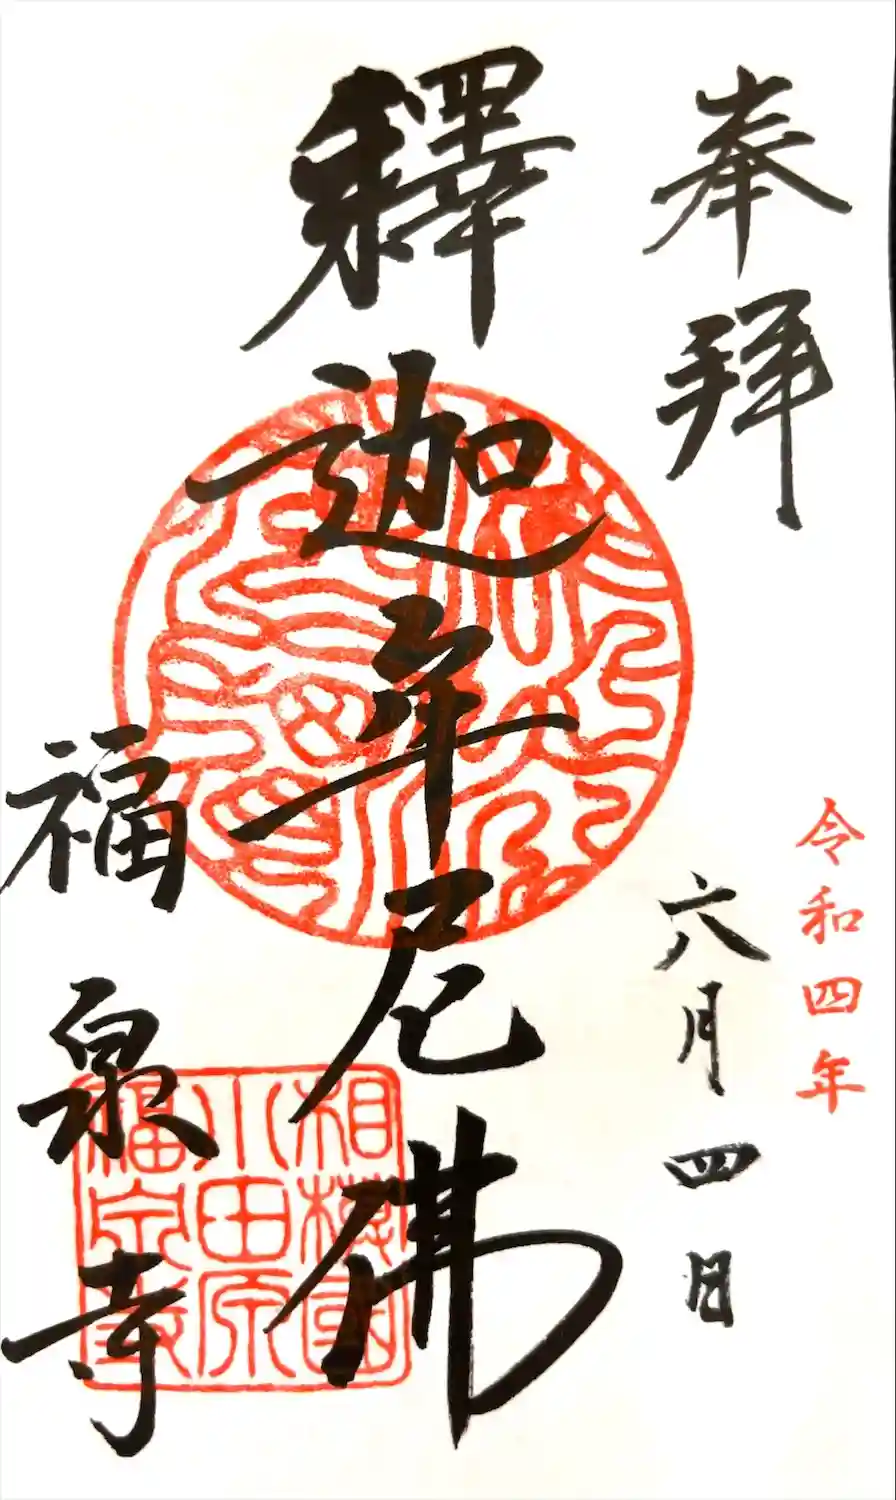 奉拜
令和四年
六月四日
釋迦牟尼佛
福泉寺
相模國
小田原
福泉寺